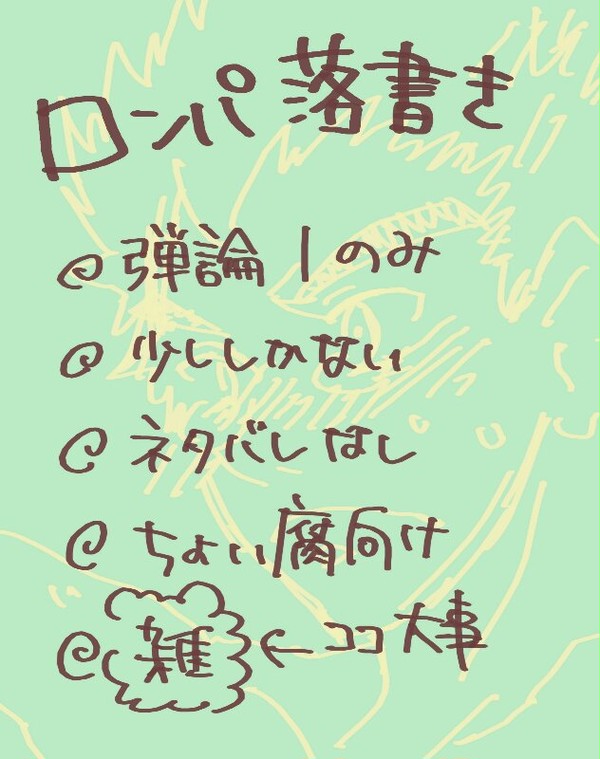 ロンパ落書き
@弾論1のみ
@少ししかない
@ネタバレなし
@ちょい腐向け
@雑←ココ大事